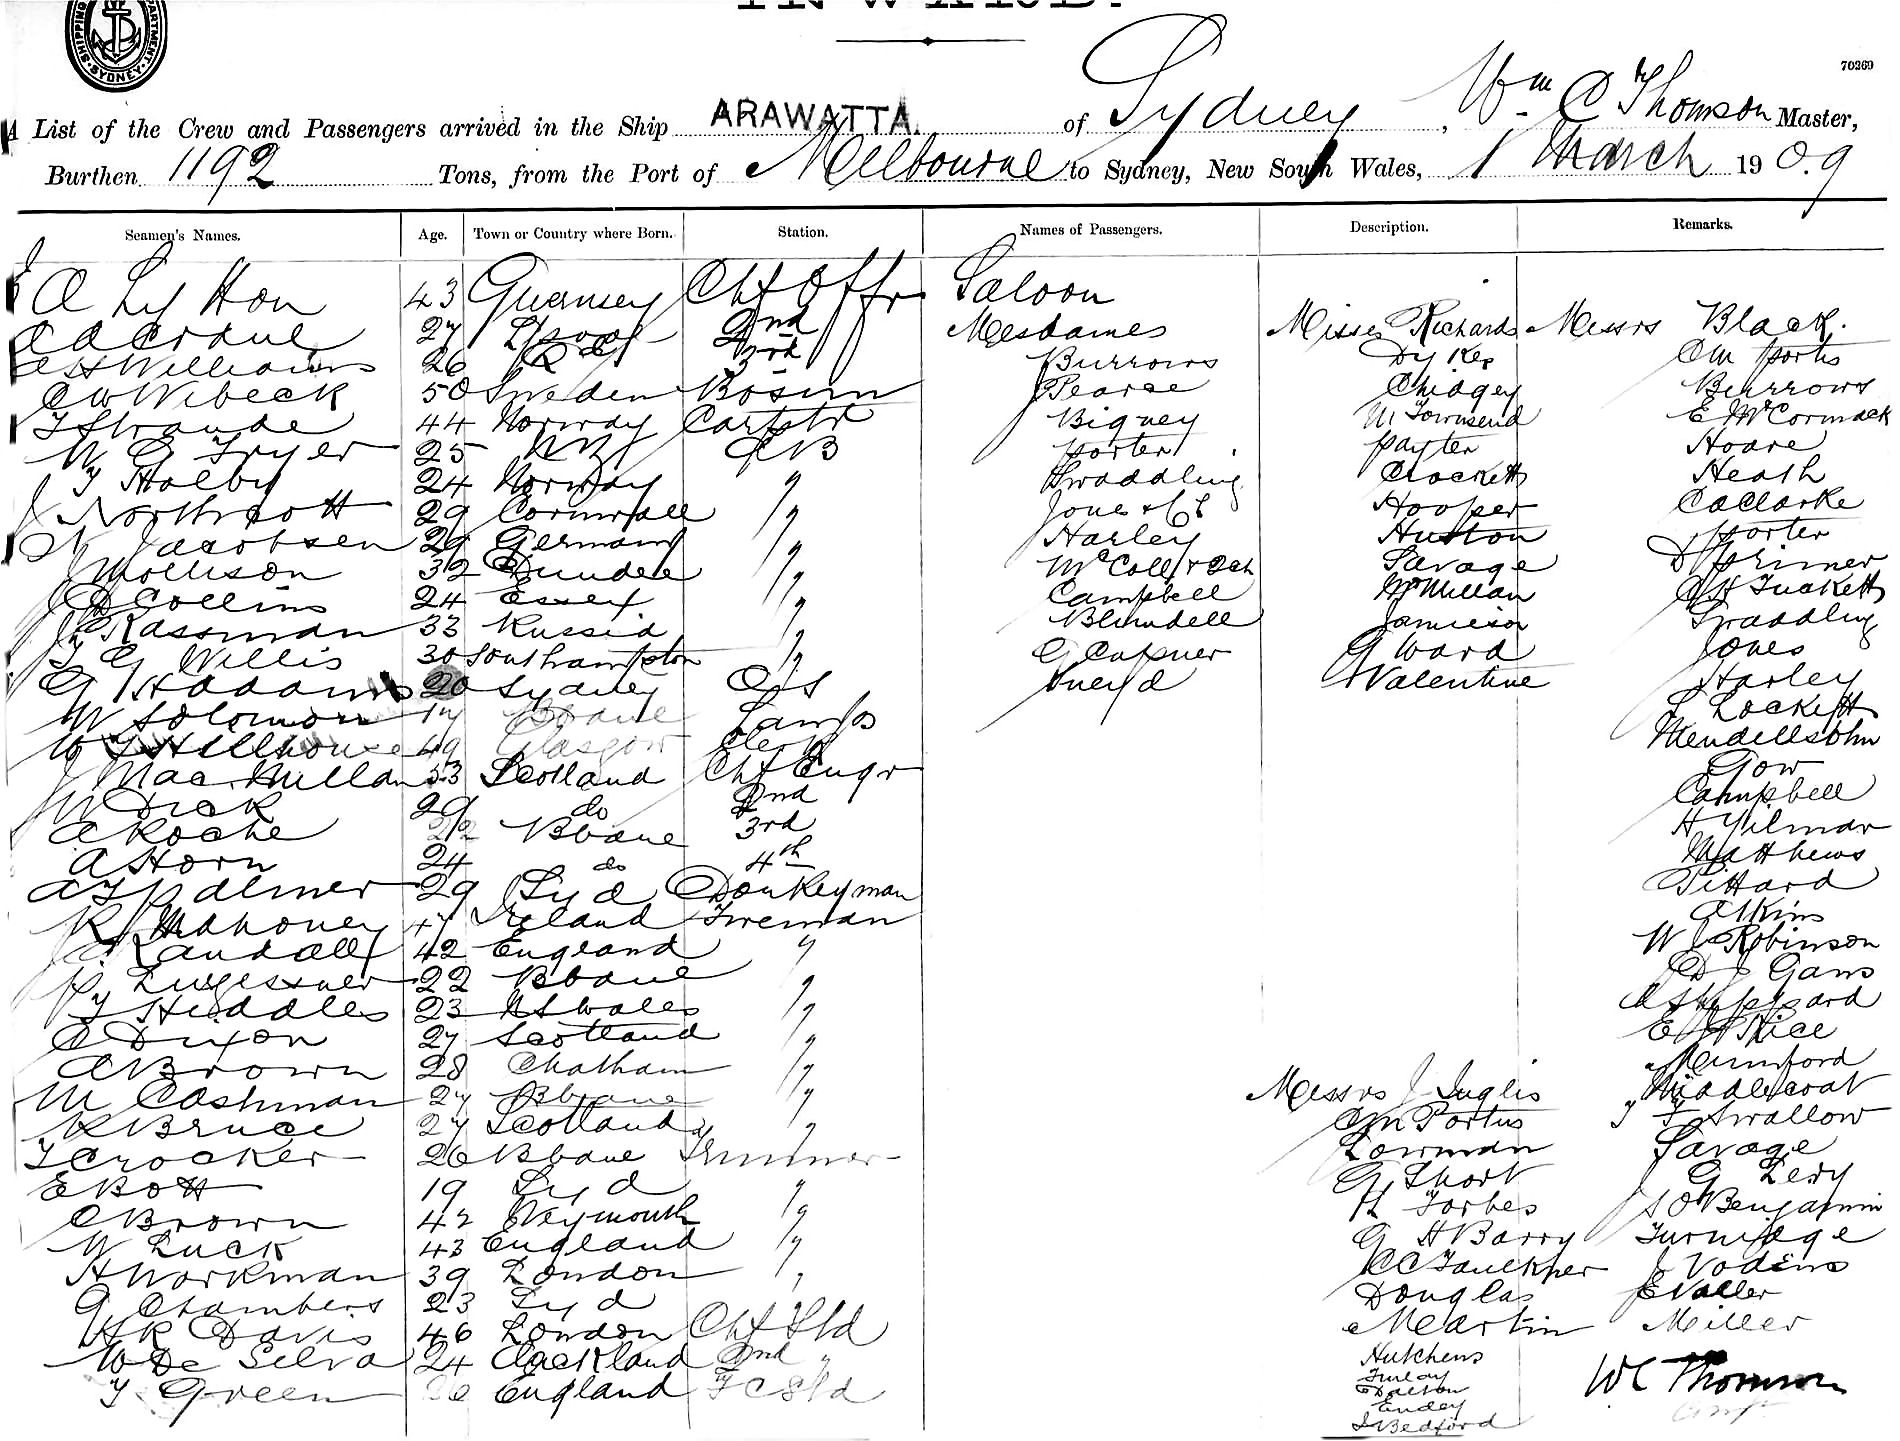 SHIPPING DEPARTMENT SYDNEY
INWARD.
70269
A List of the Crew and Passengers arrived in the Ship ARAWATTA. of Sydney, Wm C Thomson Master,
Burthen 1192 Tons, from the Port of Melbourne to Sydney, New South Wales, 1 March 1909
Seamen's Names. Age. Town or Country where Born. Station. Names of Passengers. Description. Remarks.
43 Guernsey Chf Offr Saloon
27 L'pool 2nd Mesdames Misses Richards Messrs Black.
Williams 26 3rd Burrows Dykes
C W Wibeck 50 Sweden Bosun Pearse Chidgey Burrows
44 Norway Carptr Bigney M Townsend E McCormack
W G Fryer 25 NZ AB Porter Payter Hoare
T Holby 24 Norway " Swaddling Crockett Heath
J Northcott 29 Cornwall " Jones Hooper C A Clarke
N Jacobsen 29 Germany " Harley Huston Porter
J Mollison 32 Dundee " McColl Savage D Primer
J D Collins 24 Essex " Campbell McMillan C H Tuckett
J Rassman 33 Russia " Blundell Jamieson Swaddling
T G Willis 30 Southampton " G Capner G Ward Jones
G Haddams 20 Sydney OS Sneyd Valentine Harley
W Solomon 17 Bbane Lamps L Lockett
W T Hillhouse 49 Glasgow Clerk Mendellsohn
J MacMillan 53 Scotland Chf Engr Gow
W Dick 29 do 2nd Campbell
A Roche 22 Bbane 3rd H Gilmar
A Horn 24 do 4th Matthews
A T Palmer 29 Syd Donkeyman Pittard
R Mahoney 47 Ireland Fireman Atkins
C Randall 42 England " W J Robinson
22 Bbane " D J Gans
T Hiddles 23 NSWales " A Sheppard
C Dixon 27 Scotland " E Rice
A Brown 28 Chatham " Mumford
M Cashman 27 Bbane " Messrs J Inglis Middlecoat
R Bruce 27 Scotland " C M Portus T F Swallow
T Crocker 26 Bbane Trimmer Lowman Savage
E Bott 19 Syd " G Short G Levy
C Brown 42 Weymouth " H Forbes J O Benjamin
W Luck 43 England " G H Barry Turnidge
H Workman 39 London " C C Faulkner J Vodens
G Chambers 23 Syd Douglas E Valler
H R Davis 46 London Chf Std Martin Miller
W De Silva 24 Auckland 2nd " Hutchens
T Green 26 England F C Std Finlay
Dalton
Endey
J Bedford
W C Thomson